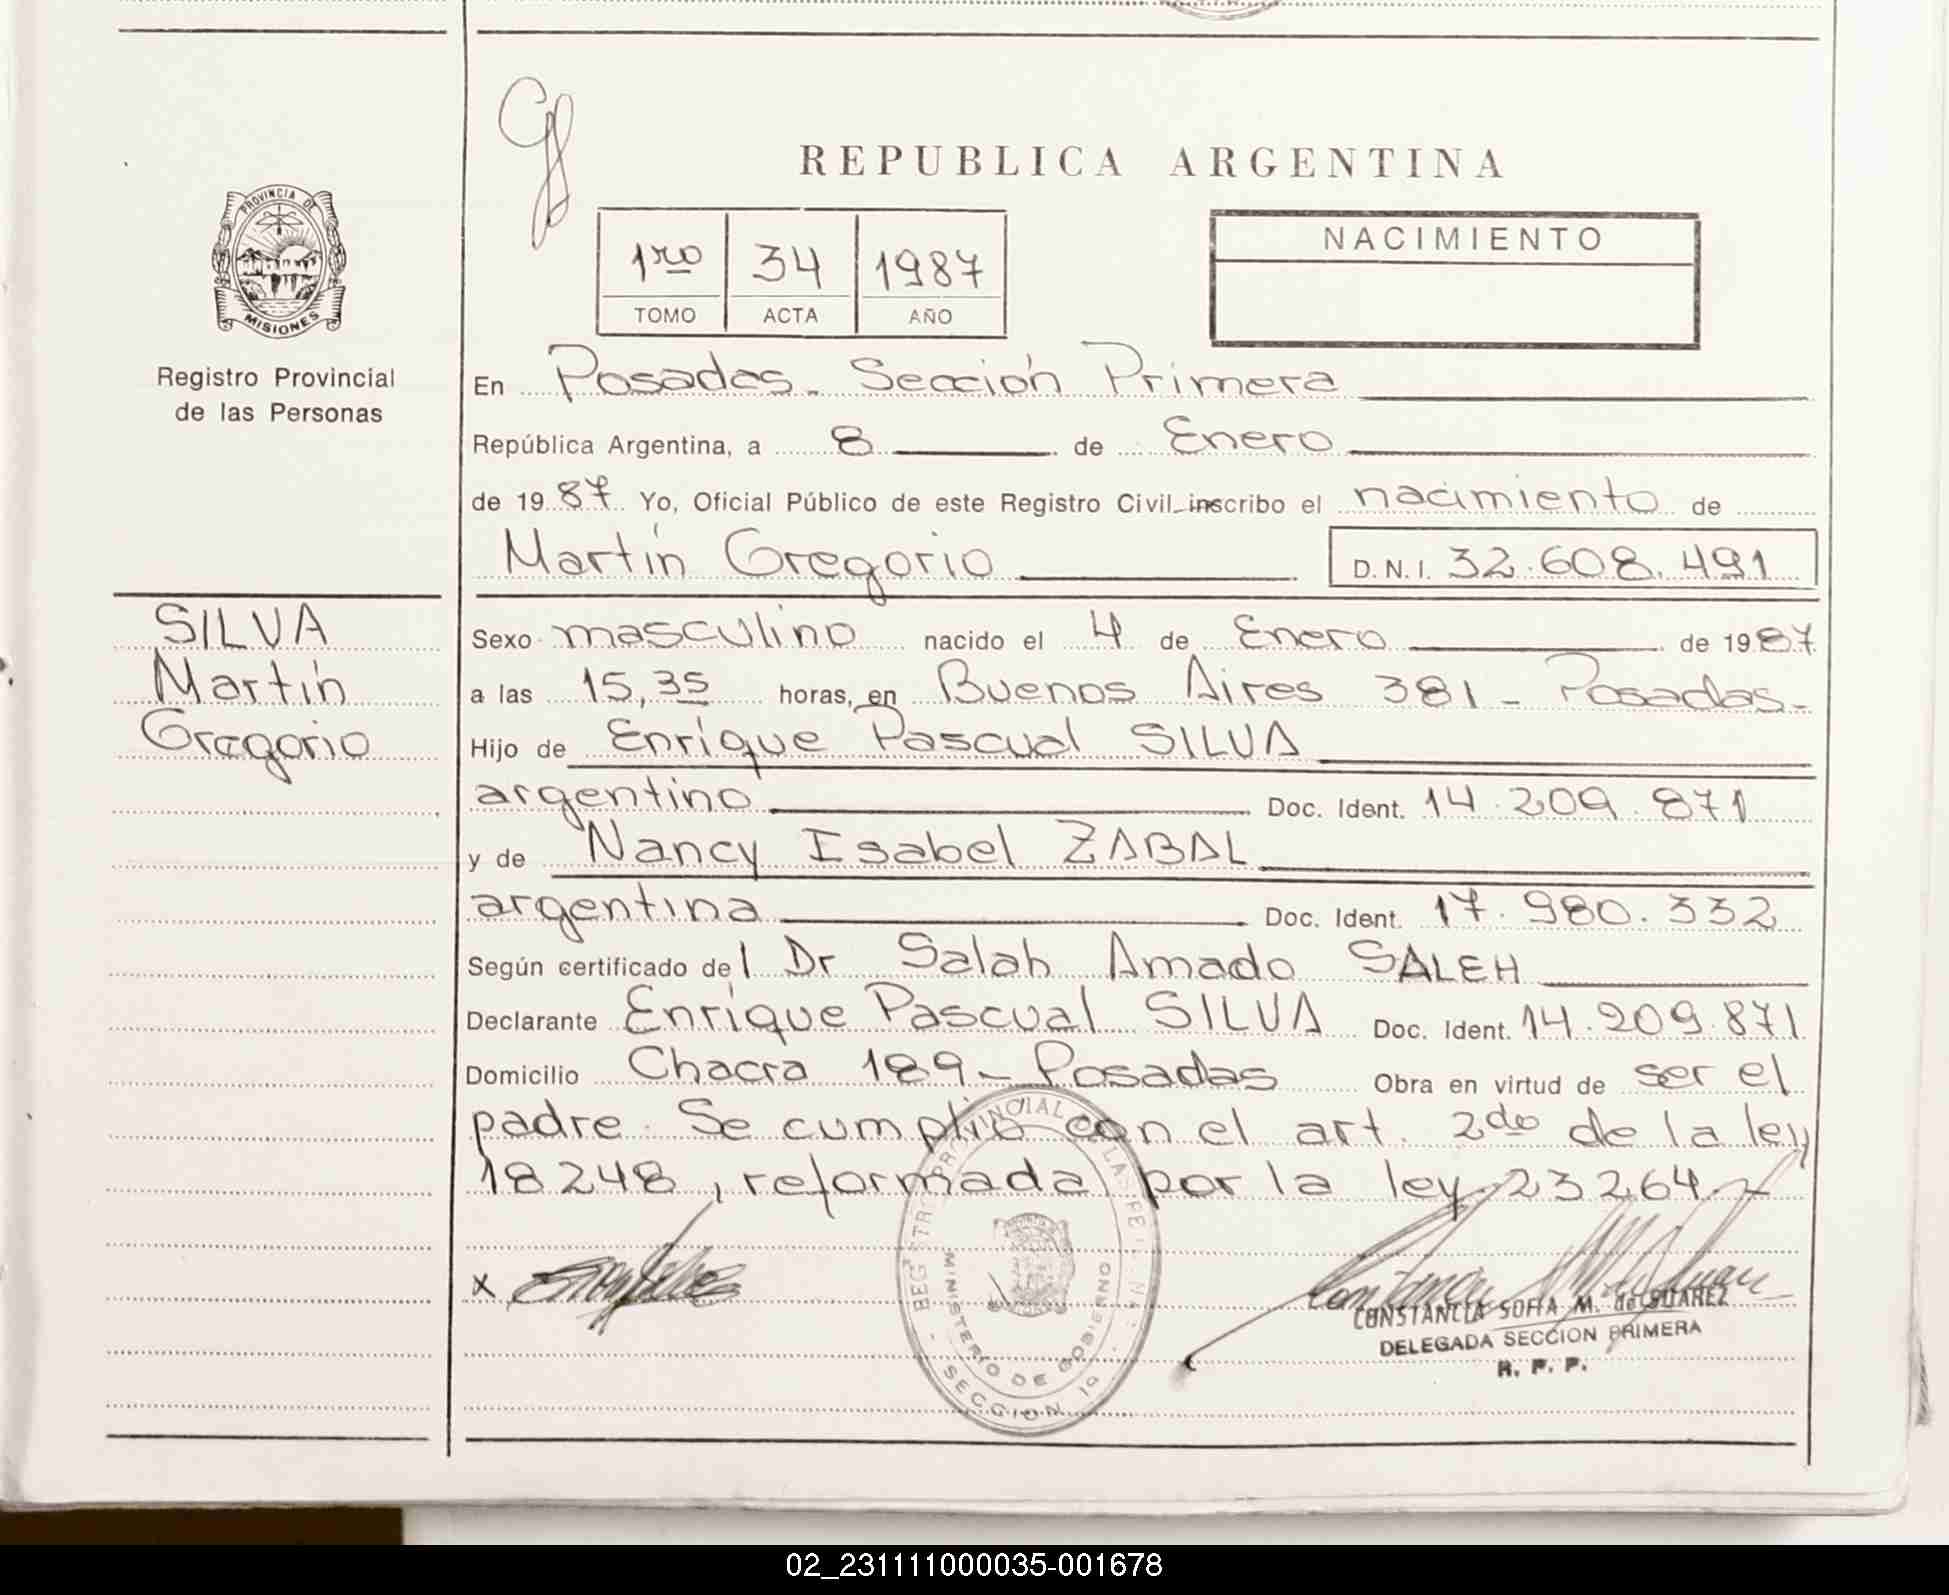 REPUBLICA ARGENTINA
PROVINCIA DE
MISIONES
Registro Provincial
de las Personas
1ro 34 1987
TOMO ACTA AÑO
NACIMIENTO
En Posadas. Sección Primera
República Argentina, a 8 de Enero
de 1987 Yo, Oficial Público de este Registro Civil inscribo el nacimiento de
Martín Gregorio D.N.I. 32.608.491
SILVA
Martín
Gregorio
Sexo masculino nacido el 4 de Enero de 1987
a las 15,35 horas, en Buenos Aires 381 - Posadas-
Hijo de Enrique Pascual SILVA
argentino Doc. Ident. 14.209.871
y de Nancy Isabel ZABAL
argentina Doc. Ident. 17.980.332
Según certificado del Dr Salah Amado SALEH
Declarante Enrique Pascual SILVA Doc. Ident. 14.209.871
Domicilio Chacra 189 - Posadas Obra en virtud de ser el
padre. Se cumplió con el art. 2do de la ley
18248, reformada por la ley 23264.-
x
MINISTERIO DE GOBIERNO
SECCION 1a
CONSTANCIA SOFIA M. de SUAREZ
DELEGADA SECCION PRIMERA
R. P. P.
02_231111000035-001678